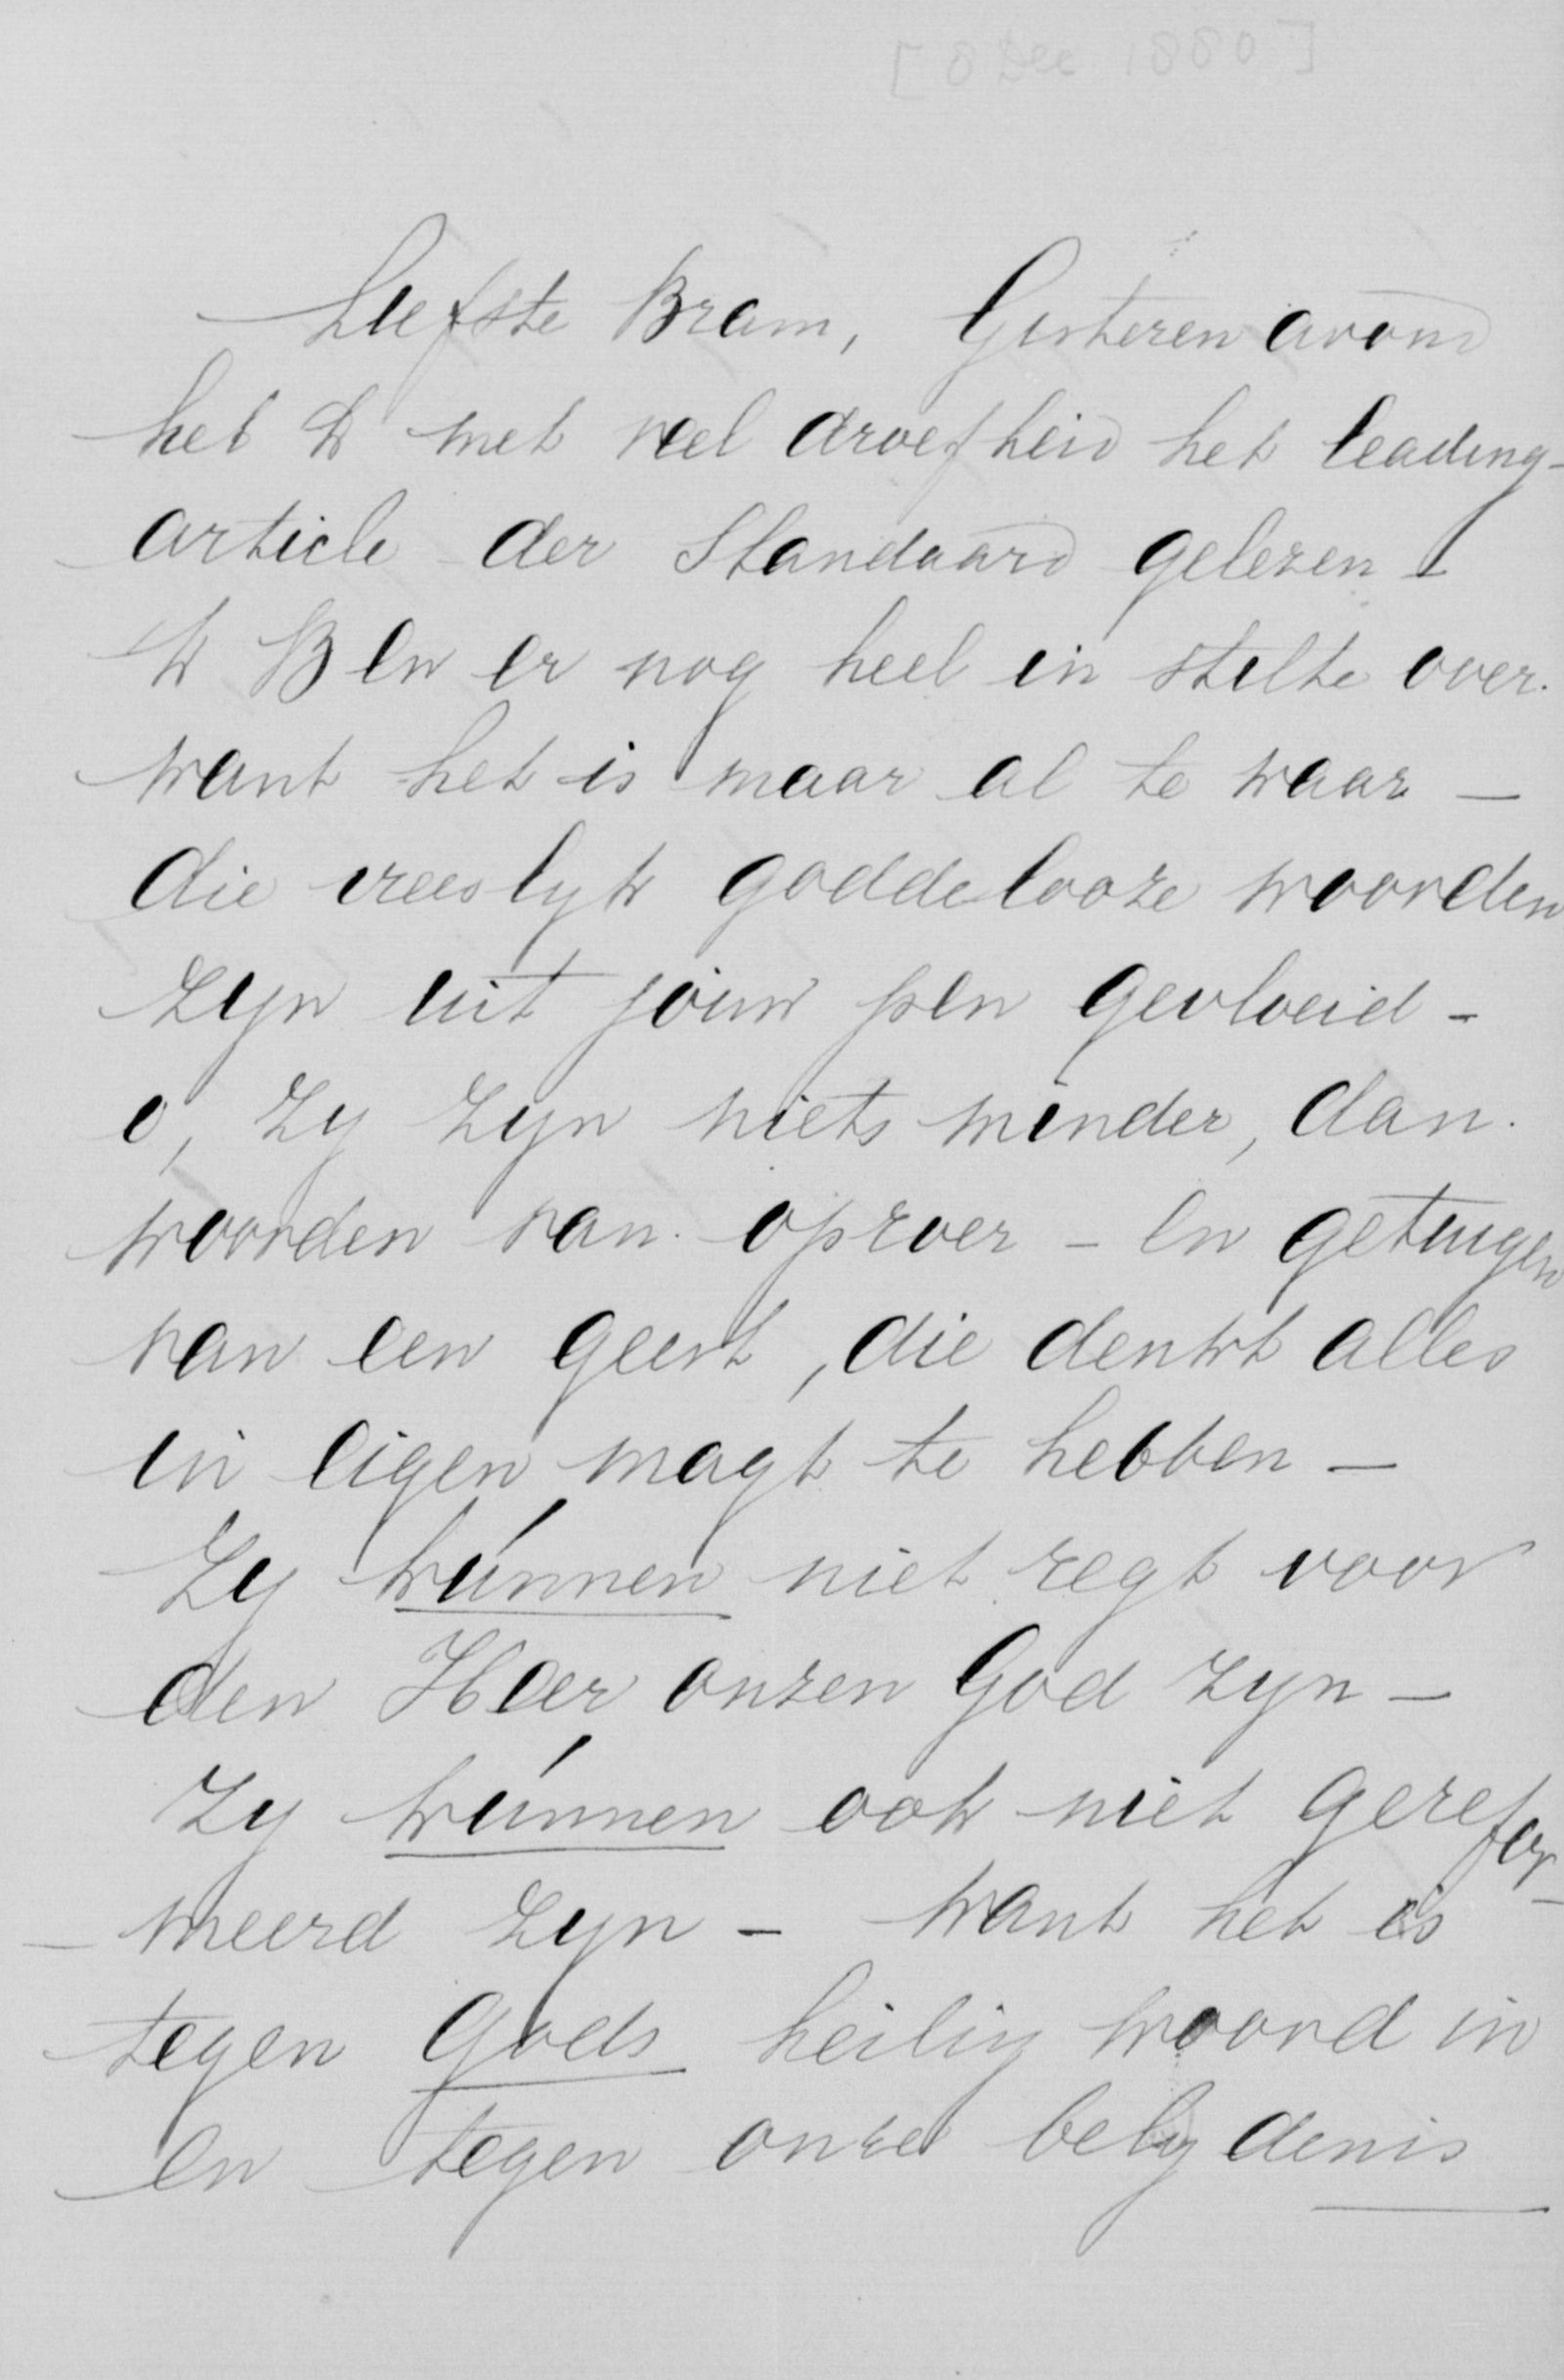 [8 Dec 1880]
Liefste Bram, Gisteren avond
heb ik met veel droefheid het leading-
article der Standaard gelezen!
Ik Ben er nog heel in stilte over.
want het is maar al te waar —
die vreeslyk goddelooze woorden
zyn uit jouw pen gevloeid -
o, zy zyn niets minder, dan.
woorden van oproer - en getuigen
van een geest, die denkt alles
in eigen magt te hebben —
Zy kúnnen niet regt voor
den Heer onzen God zyn —
Zy kúnnen ook niet gerefor-
meerd zyn - want het is
tegen Gods heilig woord in
en tegen onze belydenis